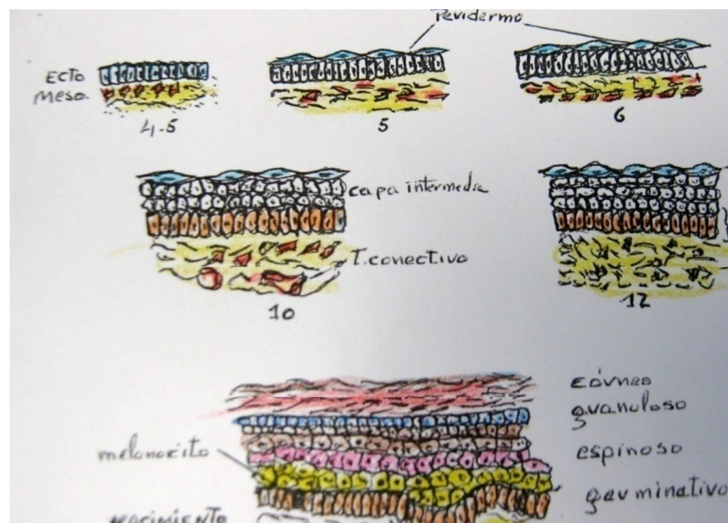 Peridermo
ECTO
MESO.
4-5
5
6
capa intermedia
T. conectivo
10
12
córneo
granuloso
melanocito
espinoso
germinativo
NACIMIENTO